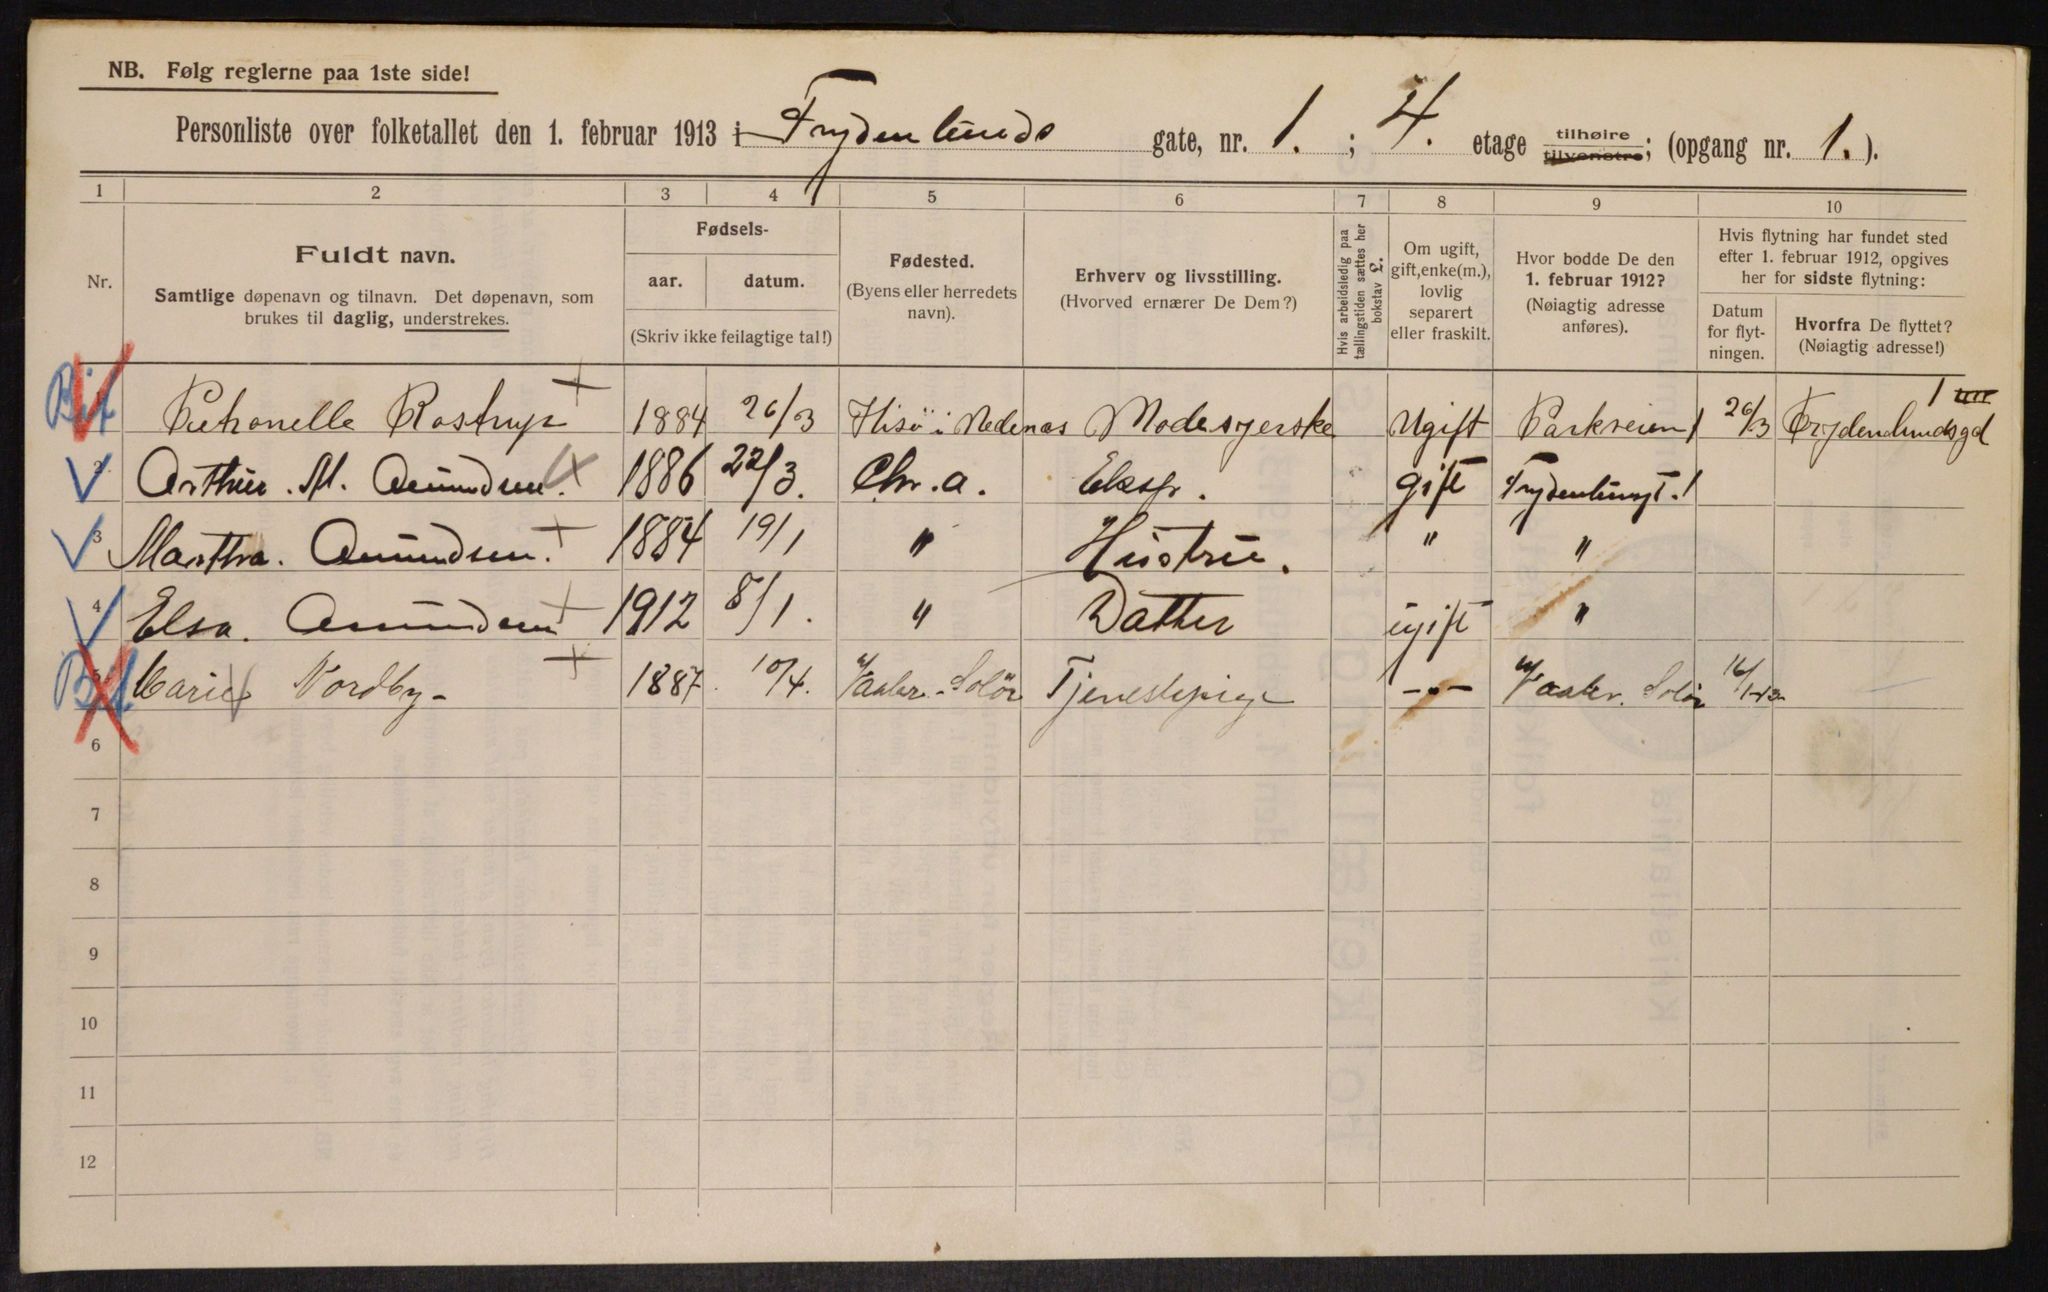 NB. Følg reglerne paa 1ste side!
Personliste over folketallet den 1. februar 1913 i Frydenlunds gate, nr. 1. ; 4. etage tilhøire tilvenstre; (opgang nr. 1.).
1 2 3 4 5 6 7 8 9 10
Nr.
Fuldt navn.
Samtlige døpenavn og tilnavn. Det døpenavn, som
brukes til daglig, understrekes.
Fødsels-
aar. datum.
(Skriv ikke feilagtige tal!)
Fødested.
(Byens eller herredets
navn).
Erhverv og livsstilling.
(Hvorved ernærer De Dem?)
Hvis arbeidsledig paa
tællingstiden sættes her
bokstav L.
Om ugift,
gift, enke(m.),
lovlig
separert
eller fraskilt.
Hvor bodde De den
1. februar 1912?
(Nøiagtig adresse
anføres).
Hvis flytning har fundet sted
efter 1. februar 1912, opgives
her for sidste flytning:
Datum
for flyt-
ningen.
Hvorfra De flyttet?
(Nøiagtig adresse!)
Petronelle Rostrup 1884 26/3 Hisö i Nedenæs Modesyerske Ugift Parkveien 1 26/3 Frydenlundsgd 1
2 Arthur. M. Amundsen. 1886 22/3. Chr.a. Eksp. gift Frydenlungt. 1
3 Martha. Amundsen. 1884 19/1 " Hustru. " "
4 Elsa. Amundsen 1912 8/1. " Datter ugift "
Marie Nordby - 1887. 10/4. Vaaler - Solör Tjenestepige -"- Vaaler. Solör
6
7
8
9
10
11
12